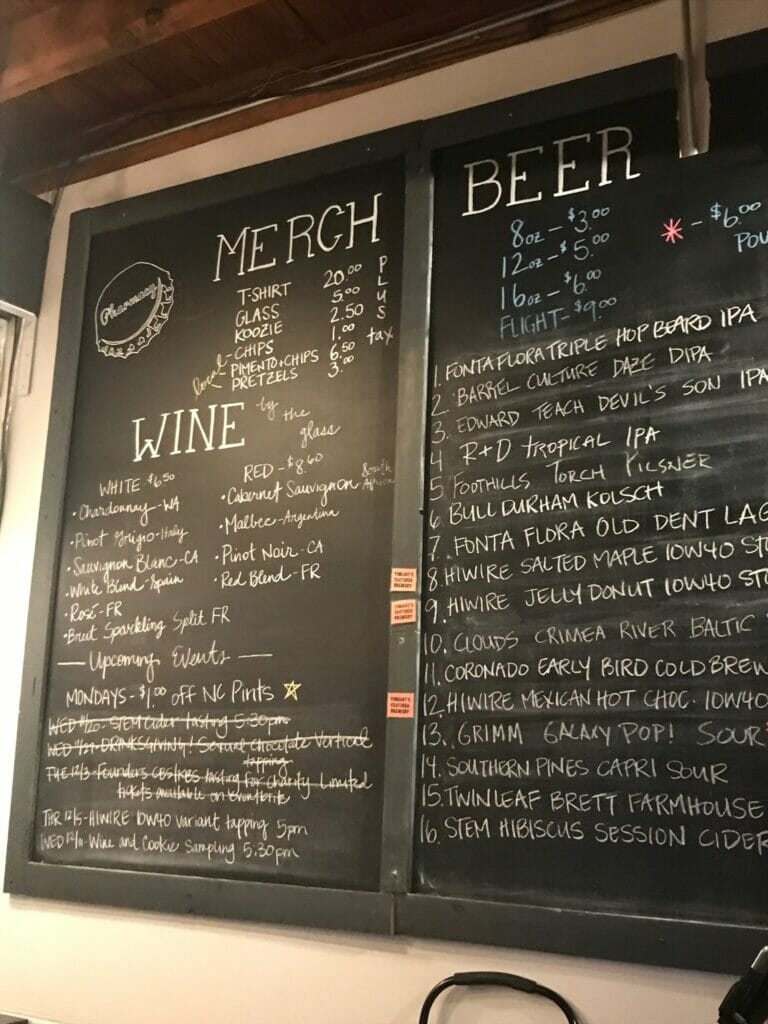 Pharmacy
MERCH
T-SHIRT 20.00
GLASS 5.00
KOOZIE 2.50
CHIPS 1.00
local - PIMENTO+CHIPS 6.50
PRETZELS 3.00
PLUS
tax
WINE by the glass
WHITE $6.50
• Chardonnay-WA
• Pinot Grigio-Italy
• Sauvignon Blanc-CA
• White Blend-Spain
• Rosé-FR
• Brut Sparkling Split FR
RED - $8.60
• Cabernet Sauvignon South Africa
• Malbec-Argentina
• Pinot Noir-CA
• Red Blend-FR
— Upcoming Events —
MONDAYS - $1.00 off NC Pints
WED 11/20- STEM Cider tasting 5:30pm
WED 11/27-DRINKSGIVING! Sexual Chocolate Vertical tapping
TUE 12/3- Founders CBS/KBS tasting for charity Limited
tickets available on eventbrite
THR 12/5-HIWIRE 10W40 variant tapping 5pm
WED 12/11-Wine and Cookie Sampling 5:30pm
TONIGHT'S FEATURED BREWERY
TONIGHT'S FEATURED BREWERY
TONIGHT'S FEATURED BREWERY
BEER
8oz - $3.00
12oz - $5.00
16oz - $6.00
FLIGHT - $9.00
* - $6.00
POU
1. FONTA FLORA TRIPLE HOP BEARD IPA
2. BARREL CULTURE DAZE DIPA
3. EDWARD TEACH DEVIL'S SON IPA
4 R+D TROPICAL IPA
5. FOOTHILLS TORCH PILSNER
6. BULL DURHAM KOLSCH
7. FONTA FLORA OLD DENT LAG
8. HIWIRE SALTED MAPLE 10W40 STO
9. HIWIRE JELLY DONUT 10W40 STO
10. CLOUDS CRIMEA RIVER BALTIC
11. CORONADO EARLY BIRD COLD BREW
12. HIWIRE MEXICAN HOT CHOC. 10W40
13. GRIMM GALAXY POP! SOUR*
14. SOUTHERN PINES CAPRI SOUR
15. TWINLEAF BRETT FARMHOUSE
16. STEM HIBISCUS SESSION CIDER